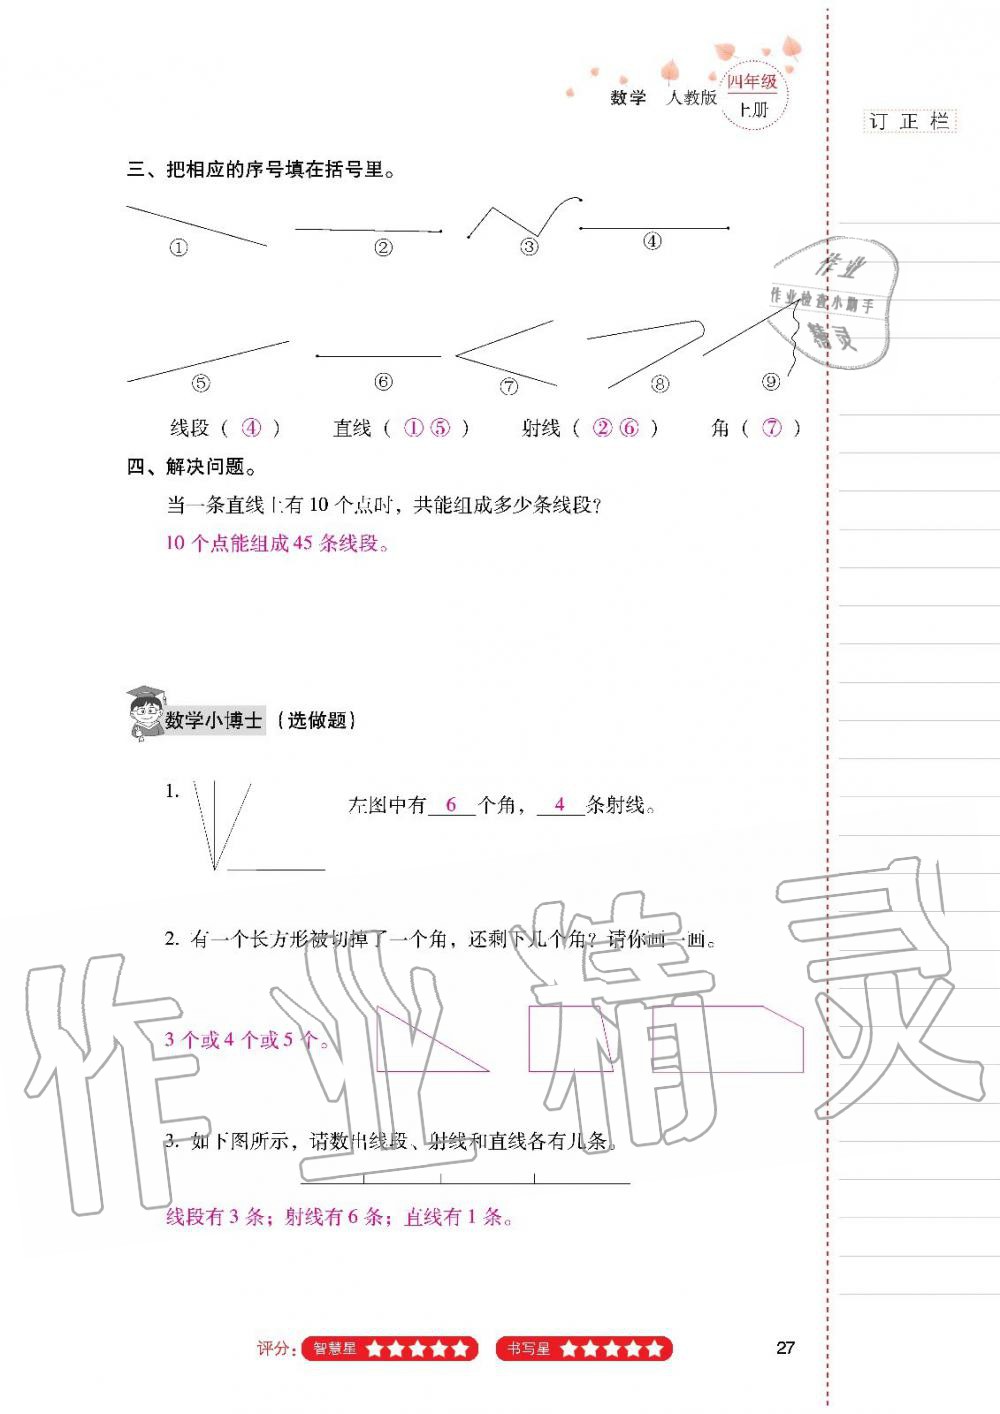 数学 人教版 四年级
上册
订正栏
三、把相应的序号填在括号里。
① ② ③ ④
⑤ ⑥ ⑦ ⑧ ⑨
线段（ ④ ） 直线（ ①⑤ ） 射线（ ②⑥ ） 角（ ⑦ ）
四、解决问题。
当一条直线上有 10 个点时，共能组成多少条线段？
10 个点能组成 45 条线段。
数学小博士（选做题）
1. 左图中有 6 个角， 4 条射线。
2. 有一个长方形被切掉了一个角，还剩下几个角？请你画一画。
3 个或 4 个或 5 个。
3. 如下图所示，请数出线段、射线和直线各有几条。
线段有 3 条；射线有 6 条；直线有 1 条。
评分： 智慧星 书写星
27
作业
作业检查小助手
精灵
作业精灵